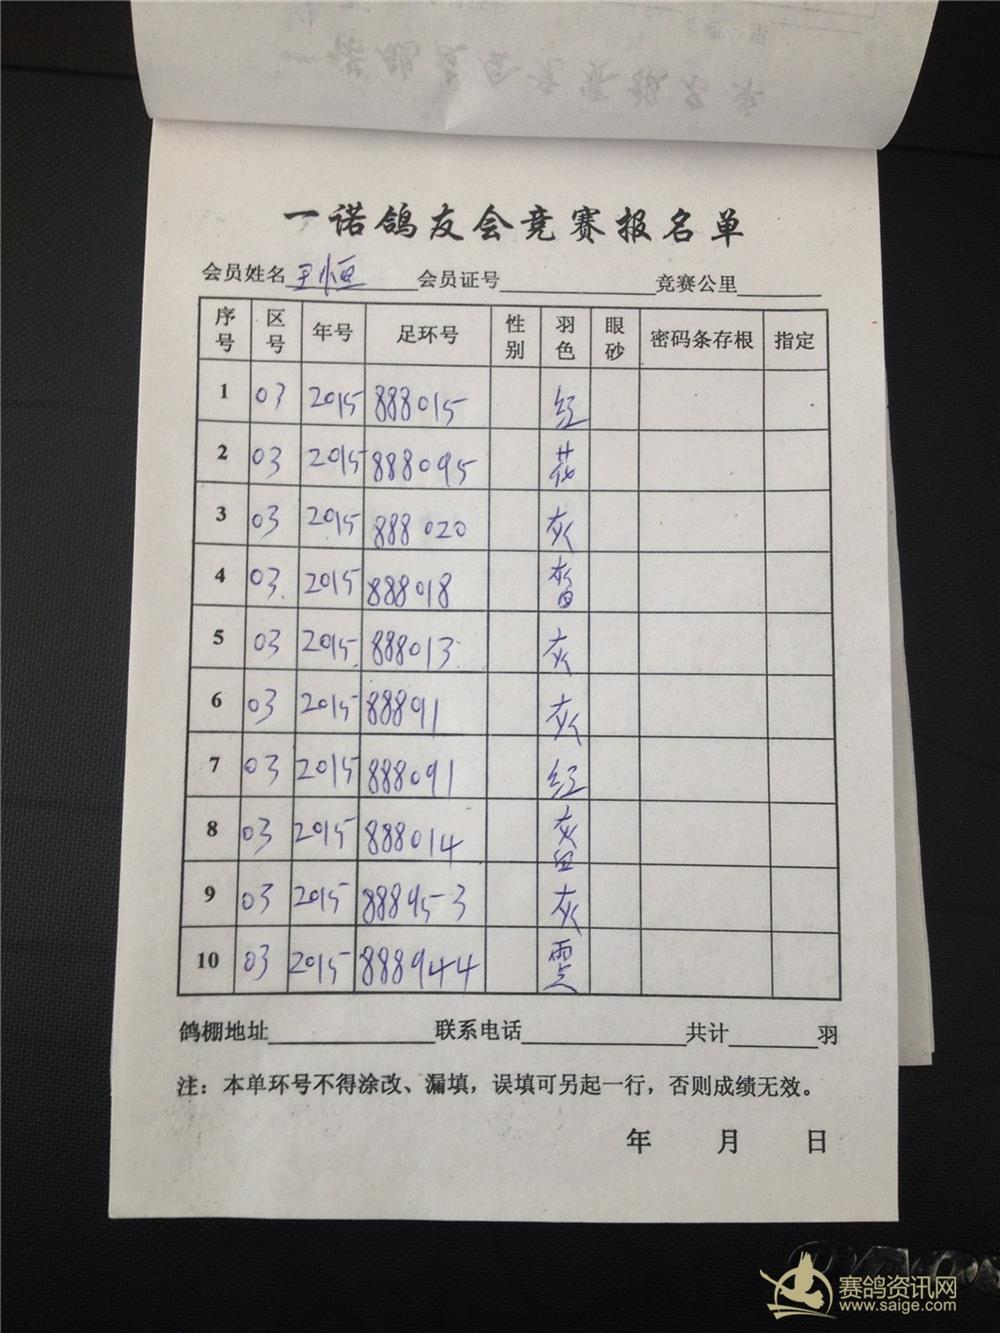 一诺鸽友会竞赛报名单
会员姓名 王恒 会员证号 竞赛公里
序号 区号 年号 足环号 性别 羽色 眼砂 密码条存根 指定
1 03 2015 888015 红
2 03 2015 888095 花
3 03 2015 888020 灰
4 03 2015 888018
5 03 2015 888013 灰
6 03 2015 88891 灰
7 03 2015 888091 红
8 03 2015 888014 灰白
9 03 2015 88895-3 灰
10 03 2015 888944
鸽棚地址 联系电话 共计 羽
注：本单环号不得涂改、漏填，误填可另起一行，否则成绩无效。
年 月 日
赛鸽资讯网
www.saige.com